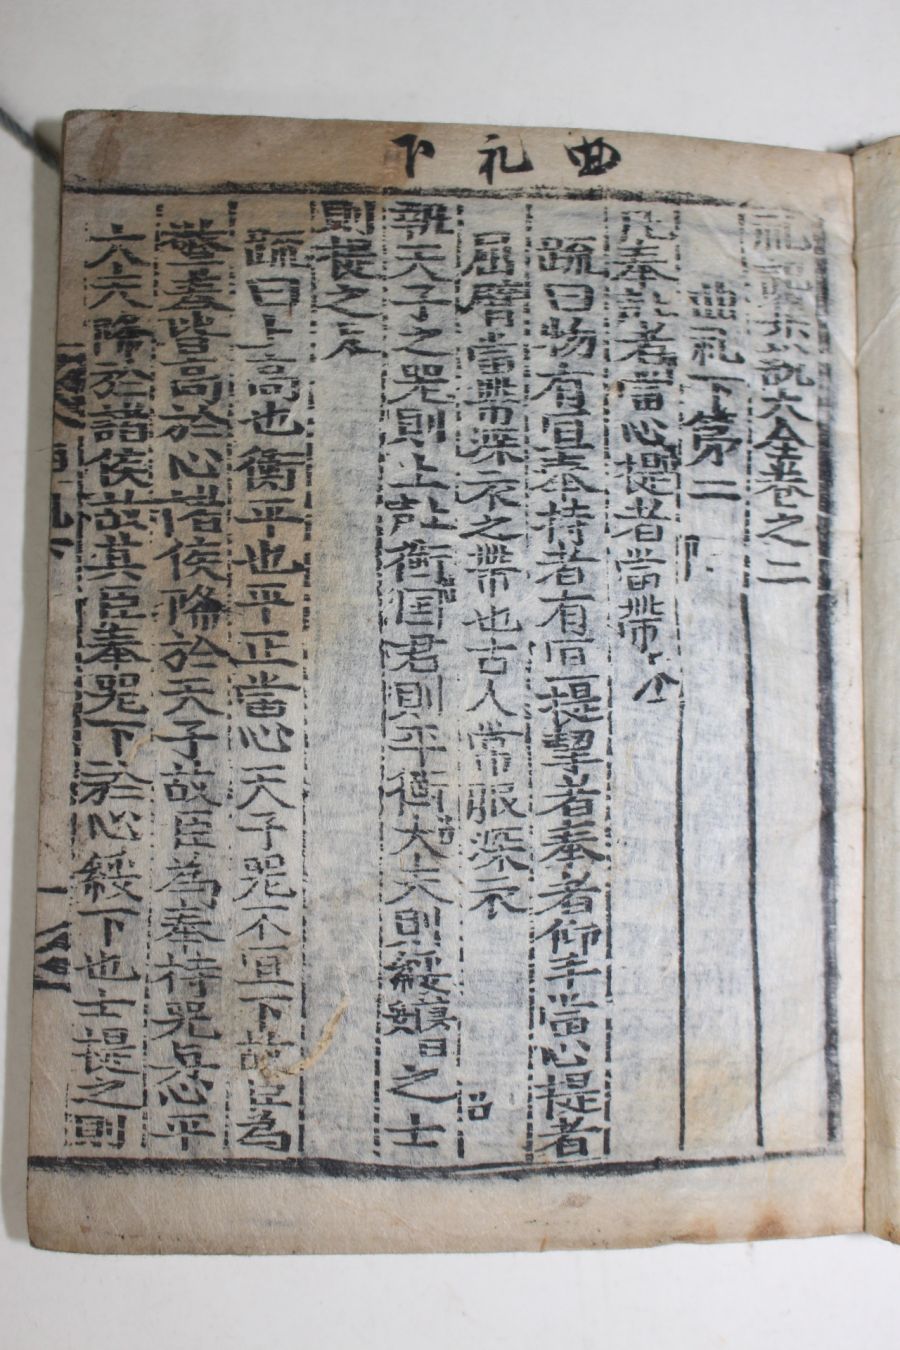 曲礼下
禮記集說大全卷之二
曲礼下第二
凡奉者當心提者當帶
疏曰物有宜奉持者有宜提挈者奉者仰手當心提者
屈臂當帶深衣之帶也古人常服深衣
執天子之器則上衡国君則平衡大夫則綏之士
則提之
疏曰上高也衡平也平正當心天子器不宜下故臣爲
擎奉皆高於心諸侯降於天子故臣爲奉持器与心平
大夫降於諸侯故其臣奉器下於心綏下也士提之則